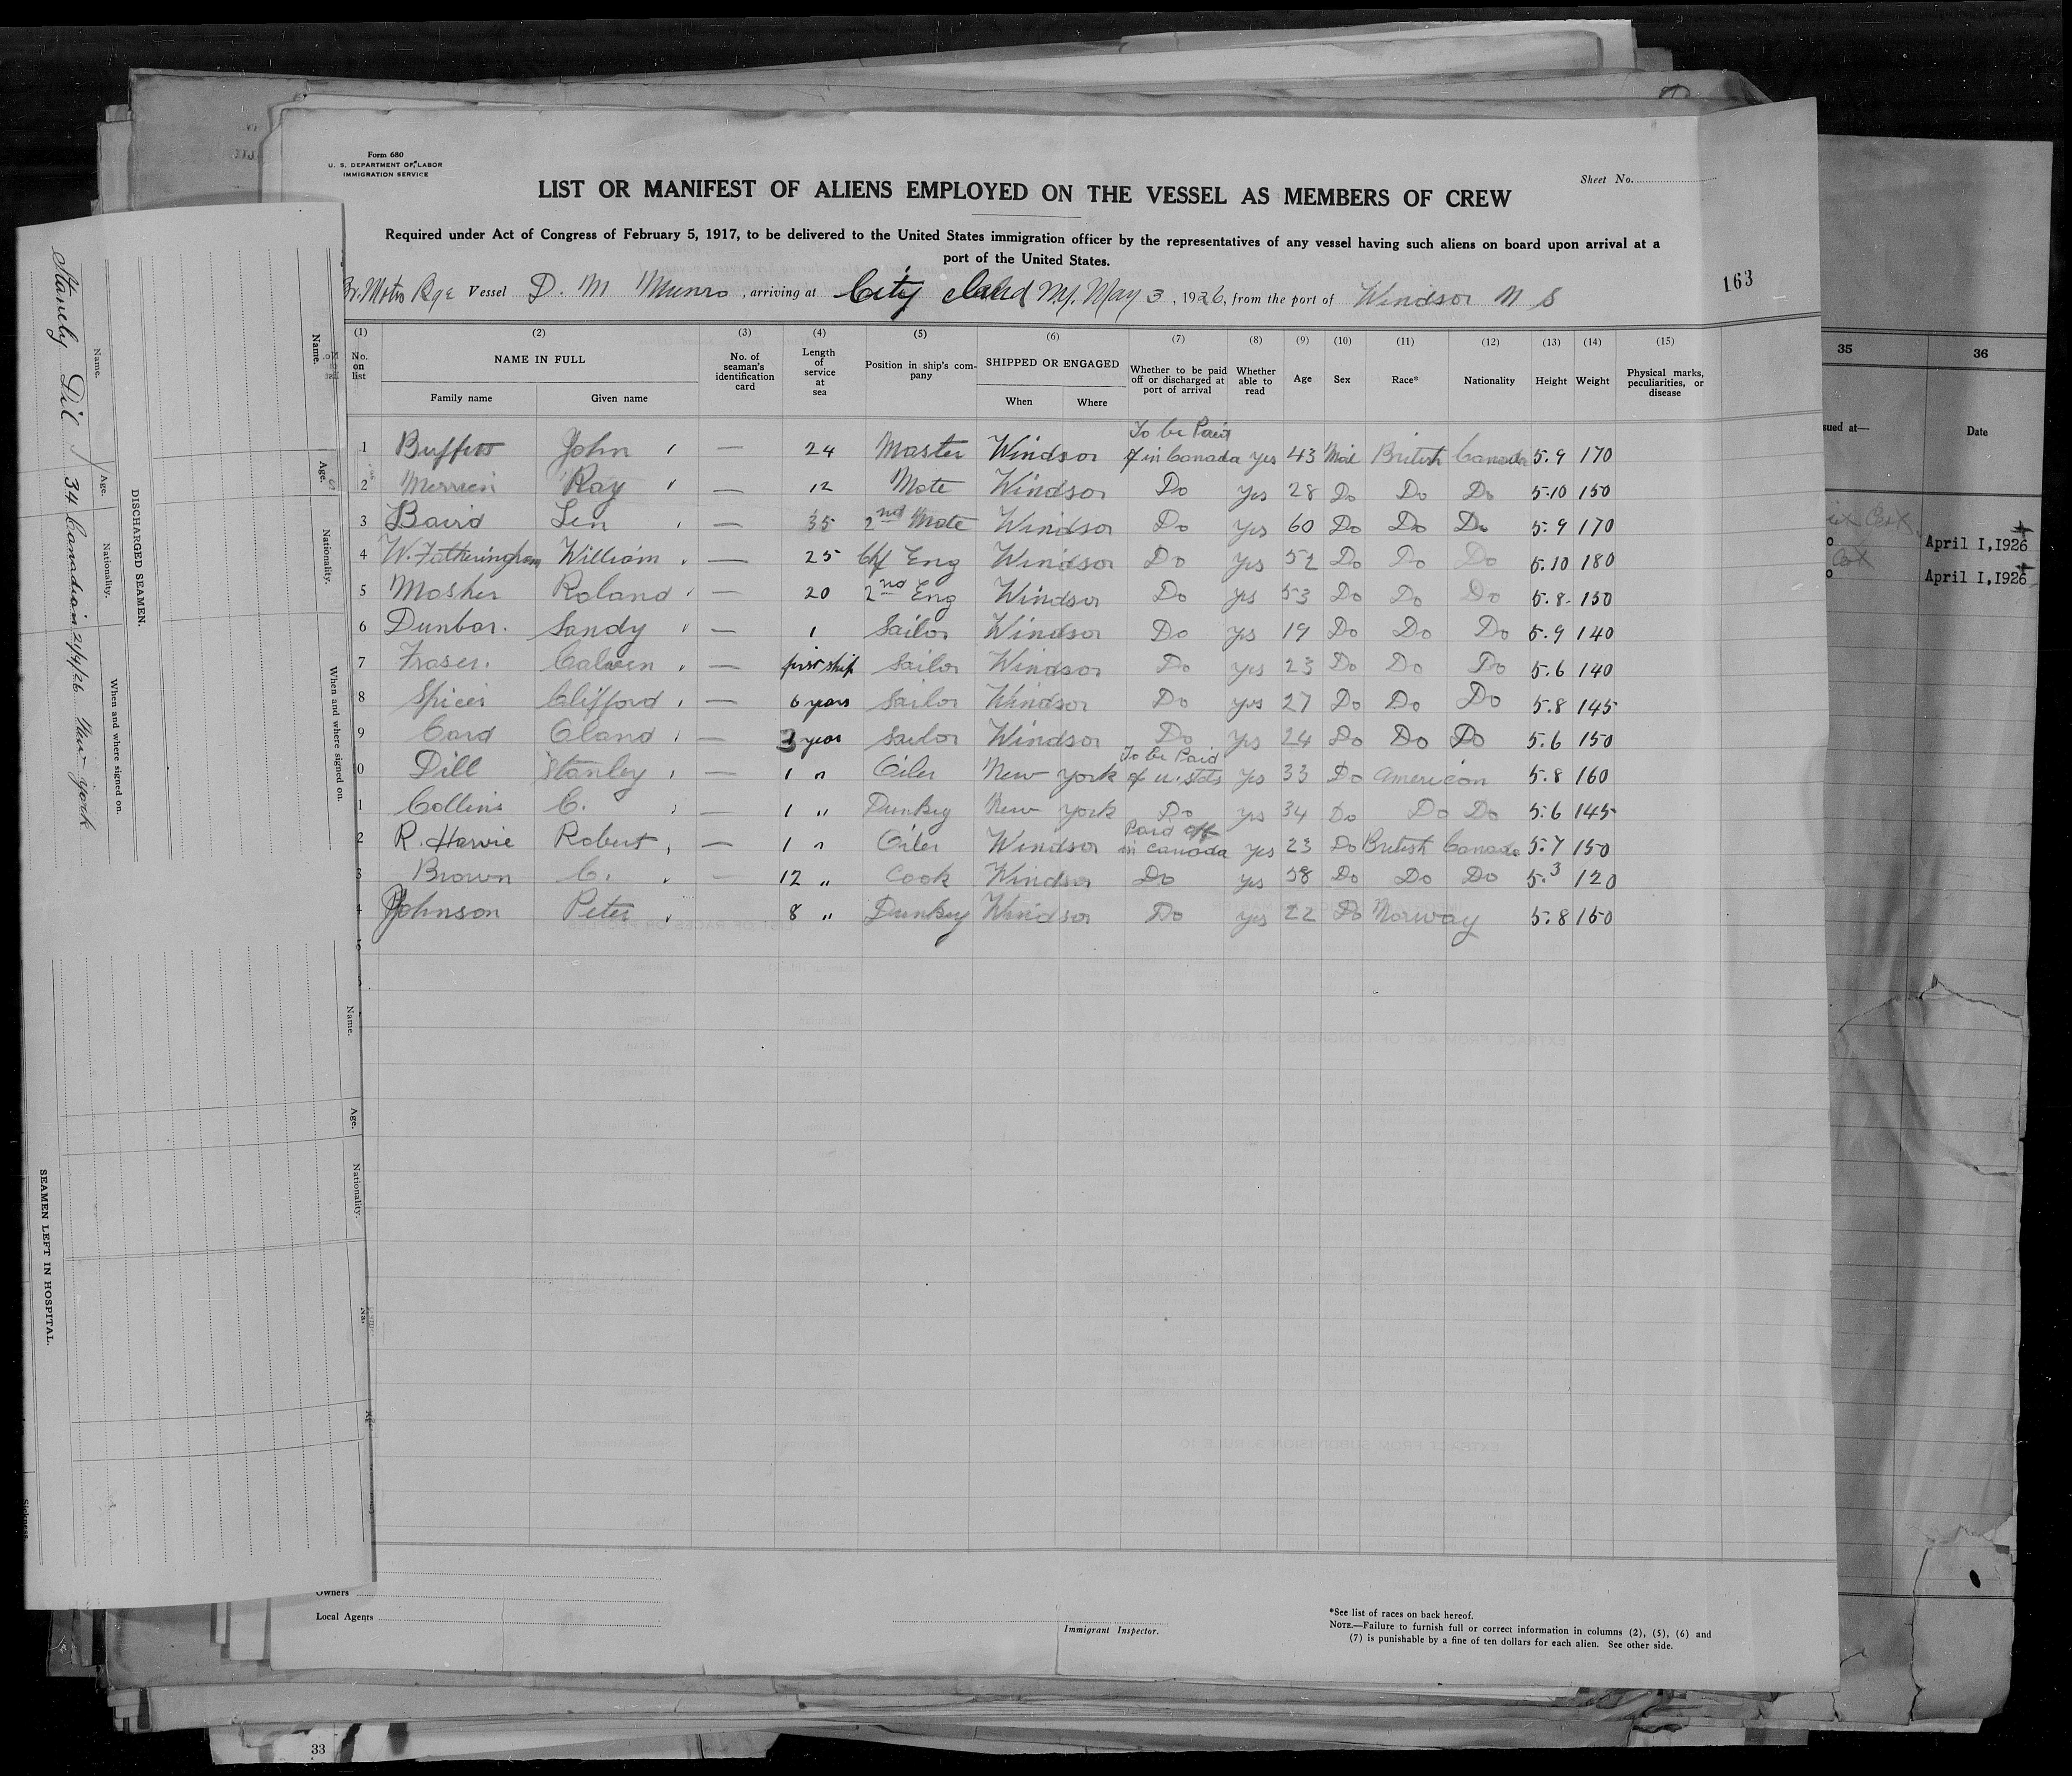 Form 680
U. S. DEPARTMENT OF LABOR
IMMIGRATION SERVICE
Sheet No.
LIST OR MANIFEST OF ALIENS EMPLOYED ON THE VESSEL AS MEMBERS OF CREW
Required under Act of Congress of February 5, 1917, to be delivered to the United States immigration officer by the representatives of any vessel having such aliens on board upon arrival at a
port of the United States.
163
Vessel D. M Munro, arriving at City Island NY, May 3, 1926, from the port of Windsor N S
(1) (2) (3) (4) (5) (6) (7) (8) (9) (10) (11) (12) (13) (14) (15)
No. on list NAME IN FULL Family name Given name No. of seaman's identification card Length of service at sea Position in ship's company SHIPPED OR ENGAGED When Where Whether to be paid off or discharged at port of arrival Whether able to read Age Sex Race* Nationality Height Weight Physical marks, peculiarities, or disease
To be Paid
1 John — 24 Master Windsor in Canada yes 43 British Canada 5.9 170
2 Ray — 12 Mate Windsor Do yes 28 Do Do Do 5.10 150
3 Baird Len — 35 2nd Mate Windsor Do yes 60 Do Do Do 5.9 170
4 W. Fetheringham William — 25 Chf Eng Windsor Do yes 52 Do Do Do 5.10 180
5 Mosher Roland — 20 2nd Eng Windsor Do yes 53 Do Do Do 5.8. 150
6 Dunbar. Sandy — 1 Sailor Windsor Do yes 19 Do Do Do 5.9 140
7 Fraser. — first ship Sailor Windsor Do yes 23 Do Do Do 5.6 140
8 Spicer Clifford — 6 years Sailor Windsor Do yes 27 Do Do Do 5.8 145
9 Card — year Sailor Windsor Do yes 24 Do Do Do 5.6 150
To be Paid
0 Dill Stanley — 1 " Oiler New York yes 33 Do American 5.8 160
1 Collins C. — 1 " Dunkey New York Do yes 34 Do Do Do 5.6 145
Paid off
2 R. Harvie Robert — 1 " Oiler Windsor in Canada yes 23 Do British Canada 5.7 150
3 Brown C. — 12 " Cook Windsor Do yes 58 Do Do Do 5.3 120
4 Johnson Peter 8 " Dunkey Windsor Do yes 22 Do Norway 5.8 150
Owners
Local Agents
Immigrant Inspector.
*See list of races on back hereof.
NOTE.—Failure to furnish full or correct information in columns (2), (5), (6) and
(7) is punishable by a fine of ten dollars for each alien. See other side.
DISCHARGED SEAMEN.
Name. Age. Nationality. When and where signed on.
Stanely Dil 34 Canadian 21/4/26 New York
Name. Age. Nationality. When and where signed on.
SEAMEN LEFT IN HOSPITAL.
Name. Age. Nationality.
35 36
Date
April 1, 1926
April 1, 1926
33